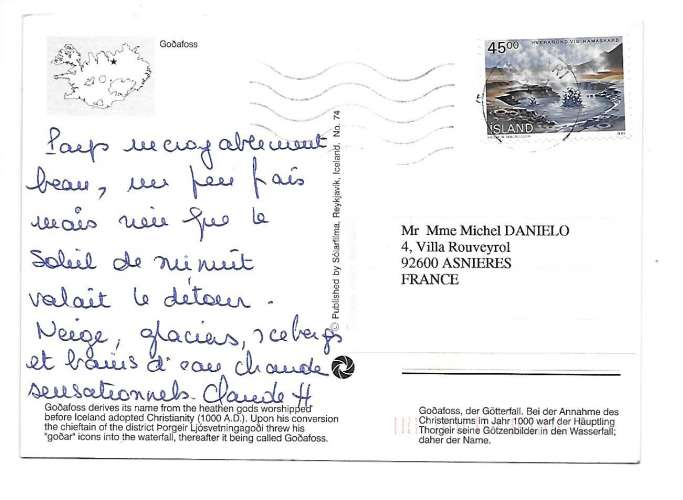 Goðafoss
HVERARÖND VIÐ NÁMASKARÐ
45⁰⁰
ISLAND
Pays incroyablement
beau, un peu frais
mais rien que le
Soleil de minuit
valait le détour.
Neige, glaciers, icebergs
et bains d'eau chaude
sensationnels. Claude H
© Published by Sólarfilma, Reykjavik, Iceland. No. 74
Mr Mme Michel DANIELO
4, Villa Rouveyrol
92600 ASNIERES
FRANCE
Goðafoss derives its name from the heathen gods worshipped
before Iceland adopted Christianity (1000 A.D.). Upon his conversion
the chieftain of the district Þorgeir Ljósvetningagoði threw his
"goðar" icons into the waterfall, thereafter it being called Goðafoss.
Goðafoss, der Götterfall. Bei der Annahme des
Christentums im Jahr 1000 warf der Häuptling
Thorgeir seine Götzenbilder in den Wasserfall;
daher der Name.